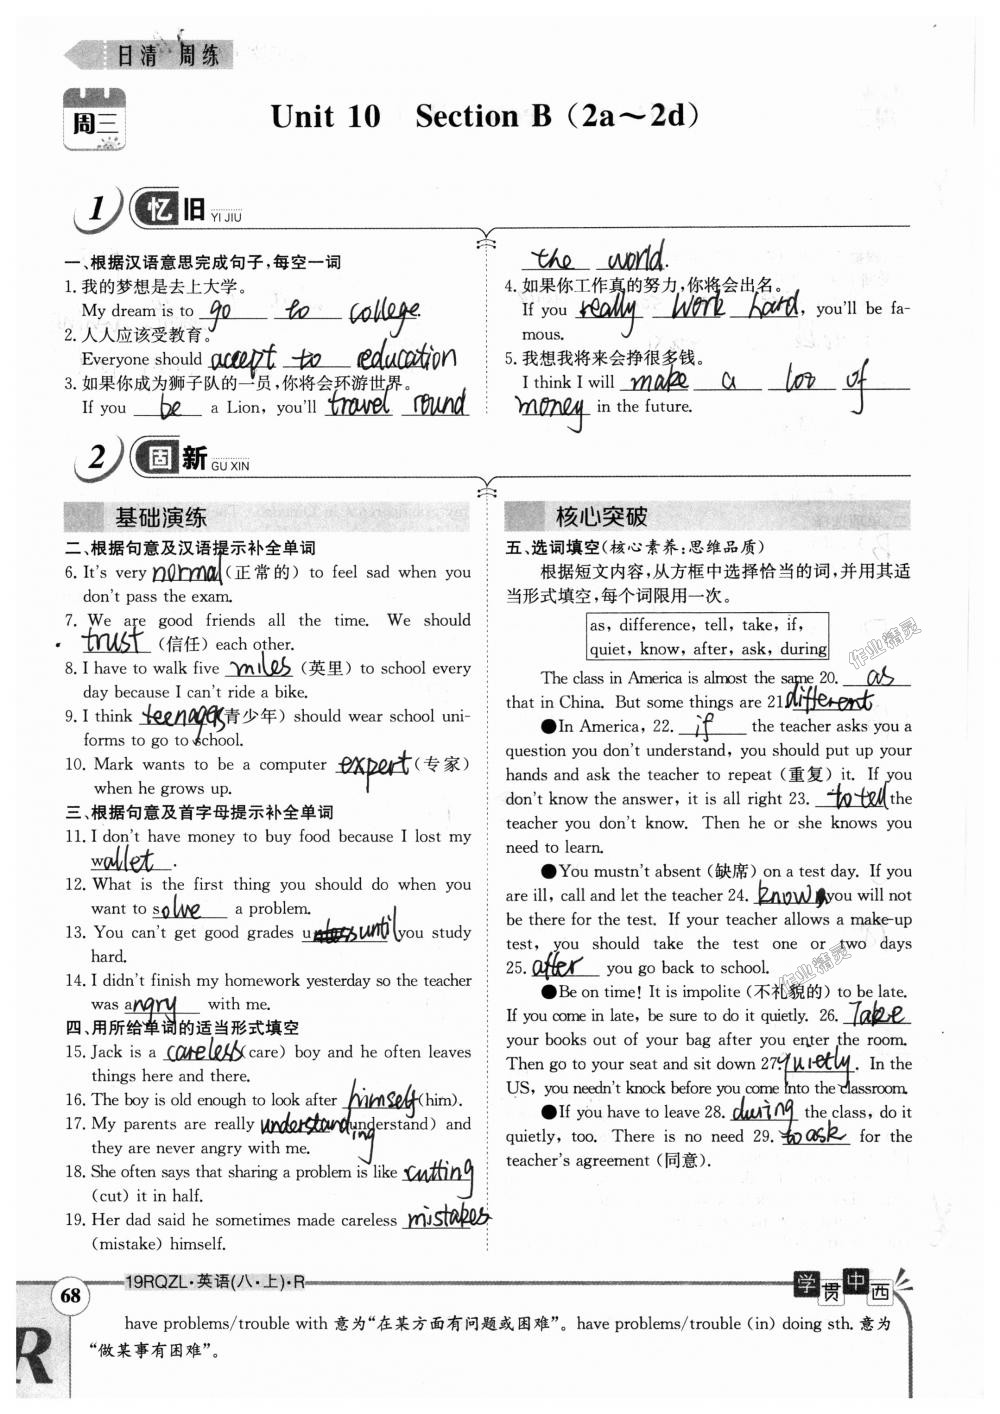 日清 周练
周三
Unit 10 Section B (2a～2d)
1 忆旧 YI JIU
一、根据汉语意思完成句子,每空一词
1. 我的梦想是去上大学。
My dream is to go to college.
2. 人人应该受教育。
Everyone should accept to education
3. 如果你成为狮子队的一员,你将会环游世界。
If you be a Lion, you'll travel round
the world.
4. 如果你工作真的努力,你将会出名。
If you really work hard, you'll be fa-
mous.
5. 我想我将来会挣很多钱。
I think I will make a lot of
money in the future.
2 固新 GU XIN
基础演练
二、根据句意及汉语提示补全单词
6. It's very normal (正常的) to feel sad when you
don't pass the exam.
7. We are good friends all the time. We should
trust (信任) each other.
8. I have to walk five miles (英里) to school every
day because I can't ride a bike.
9. I think teenages (青少年) should wear school uni-
forms to go to school.
10. Mark wants to be a computer expert (专家)
when he grows up.
三、根据句意及首字母提示补全单词
11. I don't have money to buy food because I lost my
wallet.
12. What is the first thing you should do when you
want to solve a problem.
13. You can't get good grades u until you study
hard.
14. I didn't finish my homework yesterday so the teacher
was angry with me.
四、用所给单词的适当形式填空
15. Jack is a careless (care) boy and he often leaves
things here and there.
16. The boy is old enough to look after himself (him).
17. My parents are really understanding (understand) and
they are never angry with me.
18. She often says that sharing a problem is like cutting
(cut) it in half.
19. Her dad said he sometimes made careless mistakes
(mistake) himself.
核心突破
五、选词填空(核心素养:思维品质)
根据短文内容,从方框中选择恰当的词,并用其适
当形式填空,每个词限用一次。
as, difference, tell, take, if,
quiet, know, after, ask, during
The class in America is almost the same 20. as
that in China. But some things are 21. different
●In America, 22. if the teacher asks you a
question you don't understand, you should put up your
hands and ask the teacher to repeat (重复) it. If you
don't know the answer, it is all right 23. to tell the
teacher you don't know. Then he or she knows you
need to learn.
●You mustn't absent (缺席) on a test day. If you
are ill, call and let the teacher 24. know you will not
be there for the test. If your teacher allows a make-up
test, you should take the test one or two days
25. after you go back to school.
●Be on time! It is impolite (不礼貌的) to be late.
If you come in late, be sure to do it quietly. 26. Take
your books out of your bag after you enter the room.
Then go to your seat and sit down 27. quietly. In the
US, you needn't knock before you come into the classroom.
●If you have to leave 28. during the class, do it
quietly, too. There is no need 29. to ask for the
teacher's agreement (同意).
作业精灵
作业精灵
68
19RQZL·英语(八·上)·R
学贯中西
have problems/trouble with 意为“在某方面有问题或困难”。have problems/trouble (in) doing sth. 意为
“做某事有困难”。
R